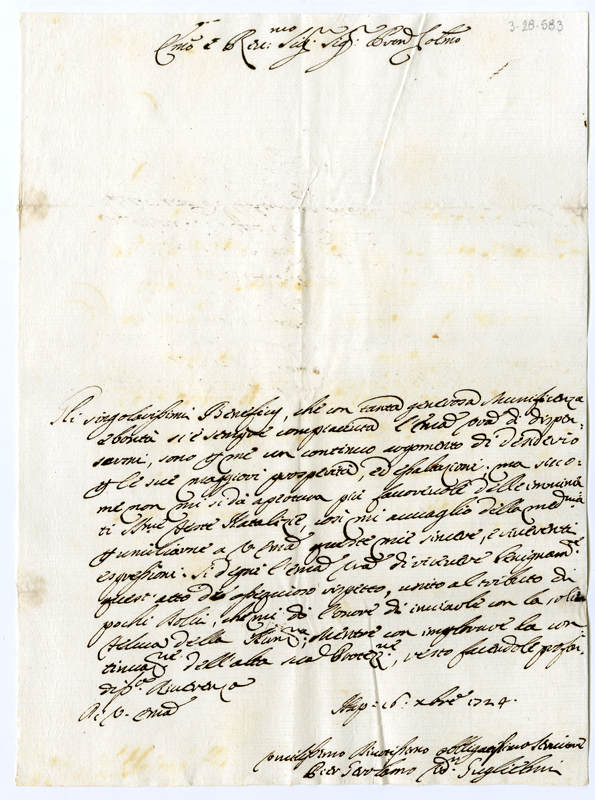 3-28-583
Em.o e Rev.mo Sig.r Sig.r Pron Col.mo
Li singolarissimi Beneficij, che con tanta generosa Munificenza
e bontà si è sempre compiaciuta l'Em.a V.ra di dispen-
sarmi, sono per me un continuo argomento di desiderio
per le sue maggiori prosperità, ed esaltazioni; ma sico-
me non mi si dà apertura più favorevole delle imminen
ti S.me feste Natalizie, così mi avvaglio della med.ma
per umiliarne a V. Em.a queste mie sincere, e riverenti
espressioni. Si degni l'Em.a V.ra di ricevere benignam.te
quest'atto di ossequioso rispetto, unito al tributo di
pochi dolci, che mi dò l'onore di inviarle con la solita
della mentre con implorare la con
tinua.ne dell'alta sua Protez.ne, resto facendole profon
dis.ma Riverenza
Di V. Em.a
Nap: 16: Xbre 1724.
Umilissimo Divotissimo Obbligatissimo Servitore
Pier Girolamo Guglielmi